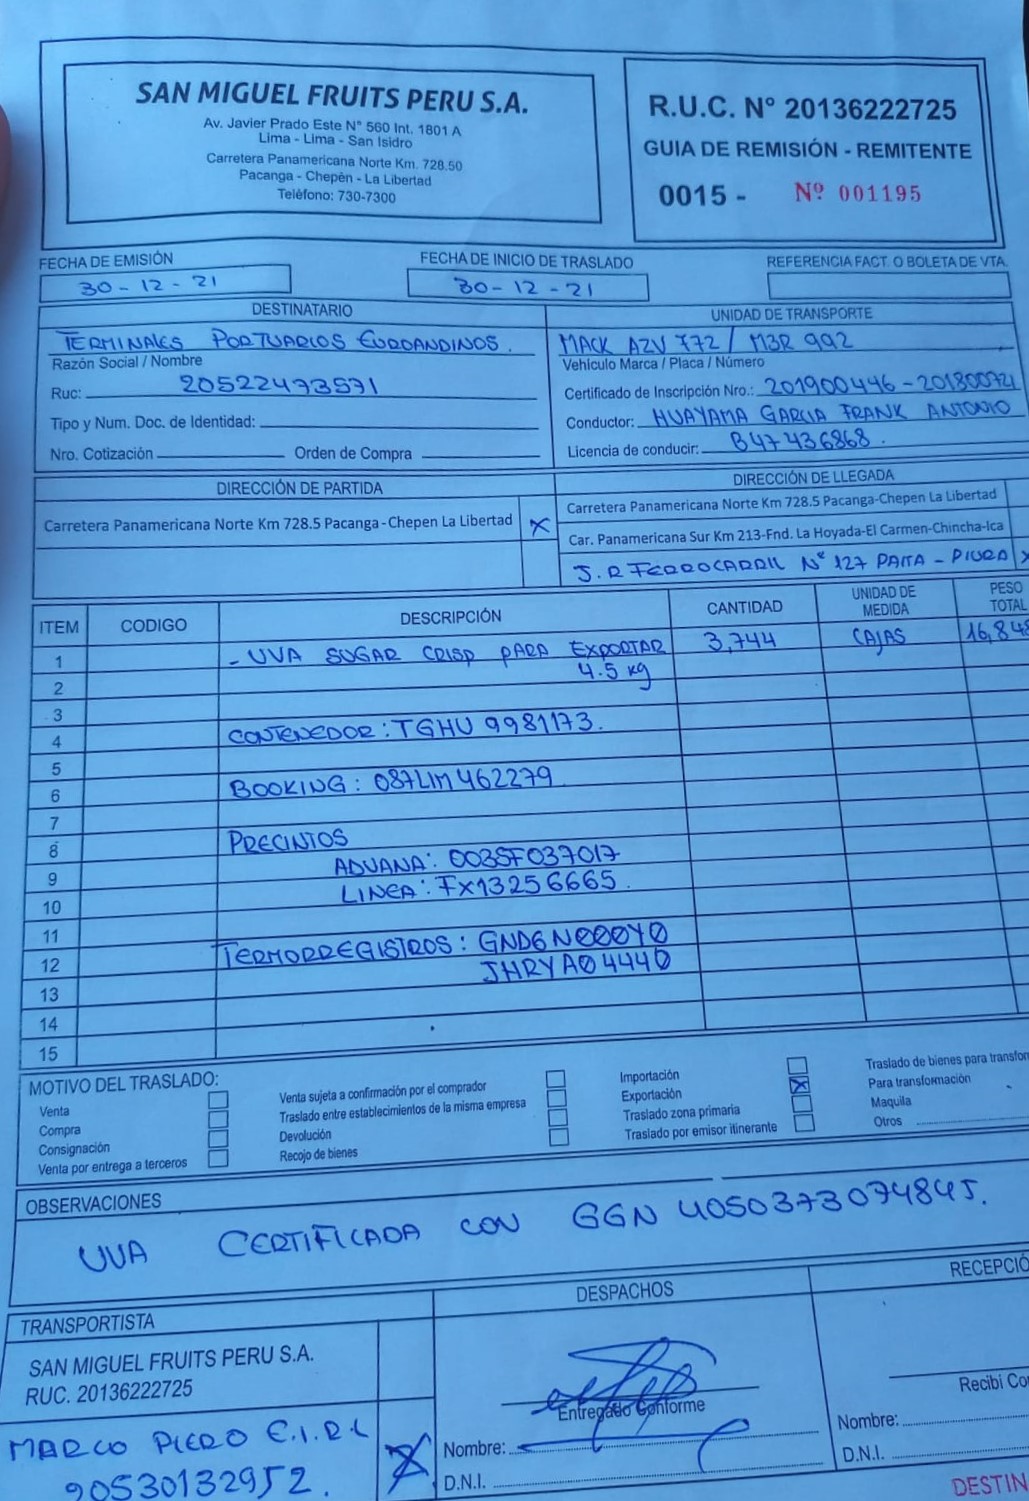 SAN MIGUEL FRUITS PERU S.A.
Av. Javier Prado Este N° 560 Int. 1801 A
Lima - Lima - San Isidro
Carretera Panamericana Norte Km. 728.50
Pacanga - Chepèn - La Libertad
Telèfono: 730-7300
R.U.C. N° 20136222725
GUIA DE REMISIÓN - REMITENTE
0015 - Nº 001195
FECHA DE EMISIÓN
30-12-21
FECHA DE INICIO DE TRASLADO
30-12-21
REFERENCIA FACT. O BOLETA DE VTA.
DESTINATARIO
TERMINALES PORTUARIOS EUROANDINOS.
Razón Social / Nombre
Ruc: 20522473571
Tipo y Num. Doc. de Identidad:
Nro. Cotización Orden de Compra
UNIDAD DE TRANSPORTE
MACK AZV 772 / M3R 992
Vehículo Marca / Placa / Número
Certificado de Inscripción Nro.: 201900446 - 20180072
Conductor: HUAYAMA GARCIA FRANK ANTONIO
Licencia de conducir: B47436868.
DIRECCIÓN DE PARTIDA
Carretera Panamericana Norte Km 728.5 Pacanga-Chepen La Libertad X
DIRECCIÓN DE LLEGADA
Carretera Panamericana Norte Km 728.5 Pacanga-Chepen La Libertad
Car. Panamericana Sur Km 213-Fnd. La Hoyada-El Carmen-Chincha-Ica
J.R FERROCARRIL N° 127 PAITA - PIURA X
ITEM CODIGO DESCRIPCIÓN CANTIDAD UNIDAD DE MEDIDA PESO TOTAL
1 - UVA SUGAR CRISP PARA EXPORTAR 3,744 CAJAS 16,848
2 4.5 kg
3
4 CONTENEDOR: TGHU 9981173.
5
6 BOOKING: 087LIM462279
7
8 PRECINTOS
9 ADUANA: 0035F037017
10 LINEA: FX13256665.
11
12 TERMORREGISTROS: GND6N000Y0
13 JHRYA04440
14
15
MOTIVO DEL TRASLADO:
Venta
Compra
Consignación
Venta por entrega a terceros
Venta sujeta a confirmación por el comprador
Traslado entre establecimientos de la misma empresa
Devolución
Recojo de bienes
Importación
Exportación X
Traslado zona primaria
Traslado por emisor itinerante
Traslado de bienes para transfor
Para transformación
Maquila
Otros
OBSERVACIONES
UVA CERTIFICADA CON GGN 4050373074845.
TRANSPORTISTA
SAN MIGUEL FRUITS PERU S.A.
RUC. 20136222725
MARCO PIERO E.I.R.L X
20530132952.
DESPACHOS
Entregado Conforme
Nombre:
D.N.I.
RECEPCIÓ
Recibí Co
Nombre:
D.N.I.
DESTIN